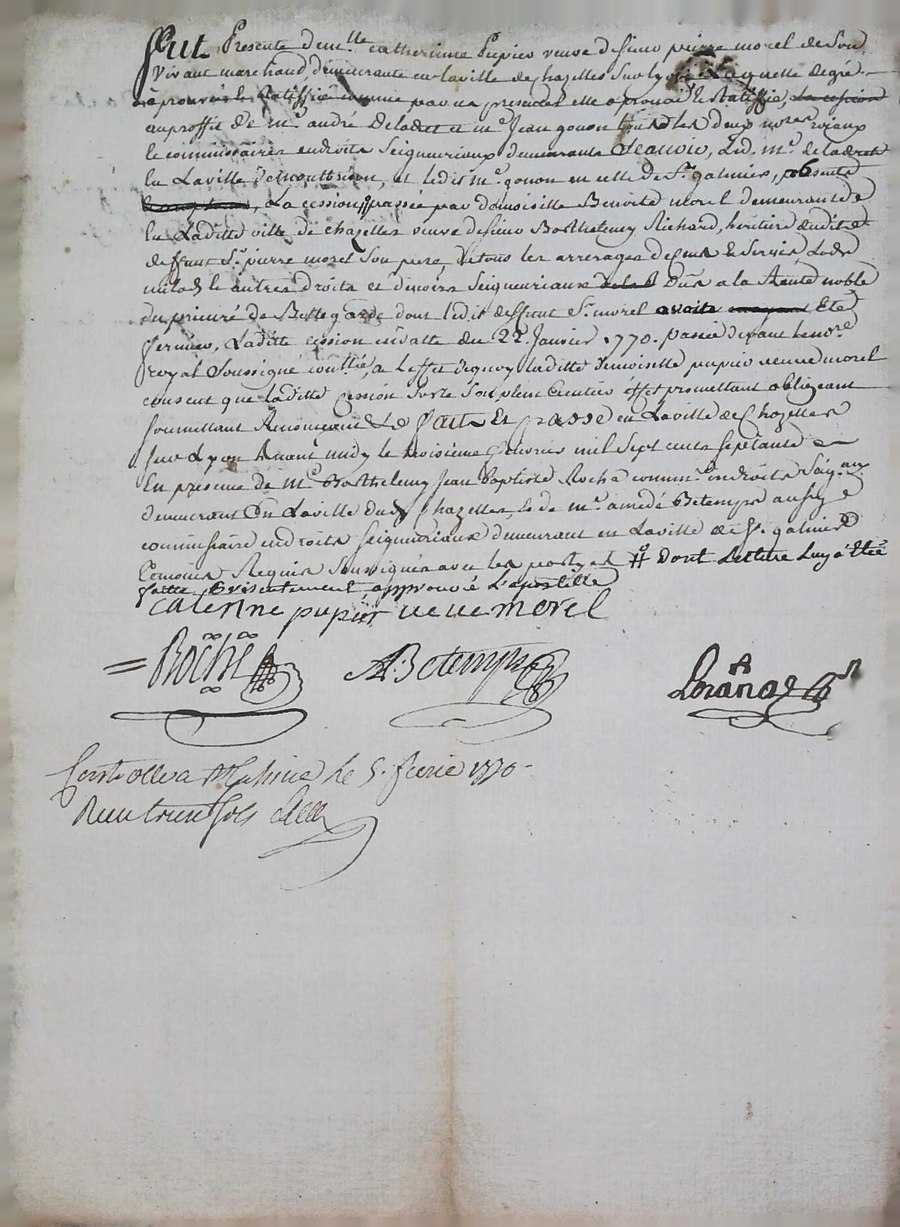 Fut Presente dem.lle catherinne Pupier veuve de sieur pierre morel de son
vivant marchand, demeurante en laville de chazelles Sur lyon Laquelle degré
aprouvé & Ratiffié comme par ces presentes elle aprouve & Ratiffie, la cession
au proffit de m.e andré Deladret et m.e Jean gonon tous les deux no.res roiaux
& commissaires en droits Seigneuriaux demeurants Scavoir, Led. m.e deladret
En Laville de montbrison, et ledit m.e gonon en celle de S.t galmier, absents
La cession passée par demoiselle Benoite morel demeurante
En Laditte ville de chazelles veuve de sieur Barthelemy Richard, heritiere dudit
deffunt S.r pierre morel Son pere, de tous les arrerages de cens & Servis, Lods
milods & autres droits et devoirs Seigneuriaux Dus a la Rente noble
du prieuré de Bellegarde dont ledit deffunt S.r morel avoit Eté
fermier, Laditte cession en datte du 22.e Janvier 1770. passée devant le no.re
royal Soussigné, a Leffet dequoy laditte demoiselle pupier veuve morel
consent que laditte cession Sorte Son plein & entier effet promettant obligeant
soumettant Renonceant & c.a Fait Et passé en Laville de Chazelles
sur Lyon Avant midy le troisieme fevrier mil Sept cents septante
En presence de m.e Barthelemy Jean Baptiste Roche comm.re en droits Seig.aux
demeurant En Laville dud. Chazelles, & de m.e amedé Betemps aussy
commissaire en droits Seigneuriaux demeurant en Laville de S.t galmier
temoins Requis Soussignés avec les parties dont Lecture Luy a Eté
faitte presentement approuvé L'apostille
caterine pupier veuve morel
Roche ABetemps
Controllé a St galmier le 5. fevrier 1770
Reçu treize sols